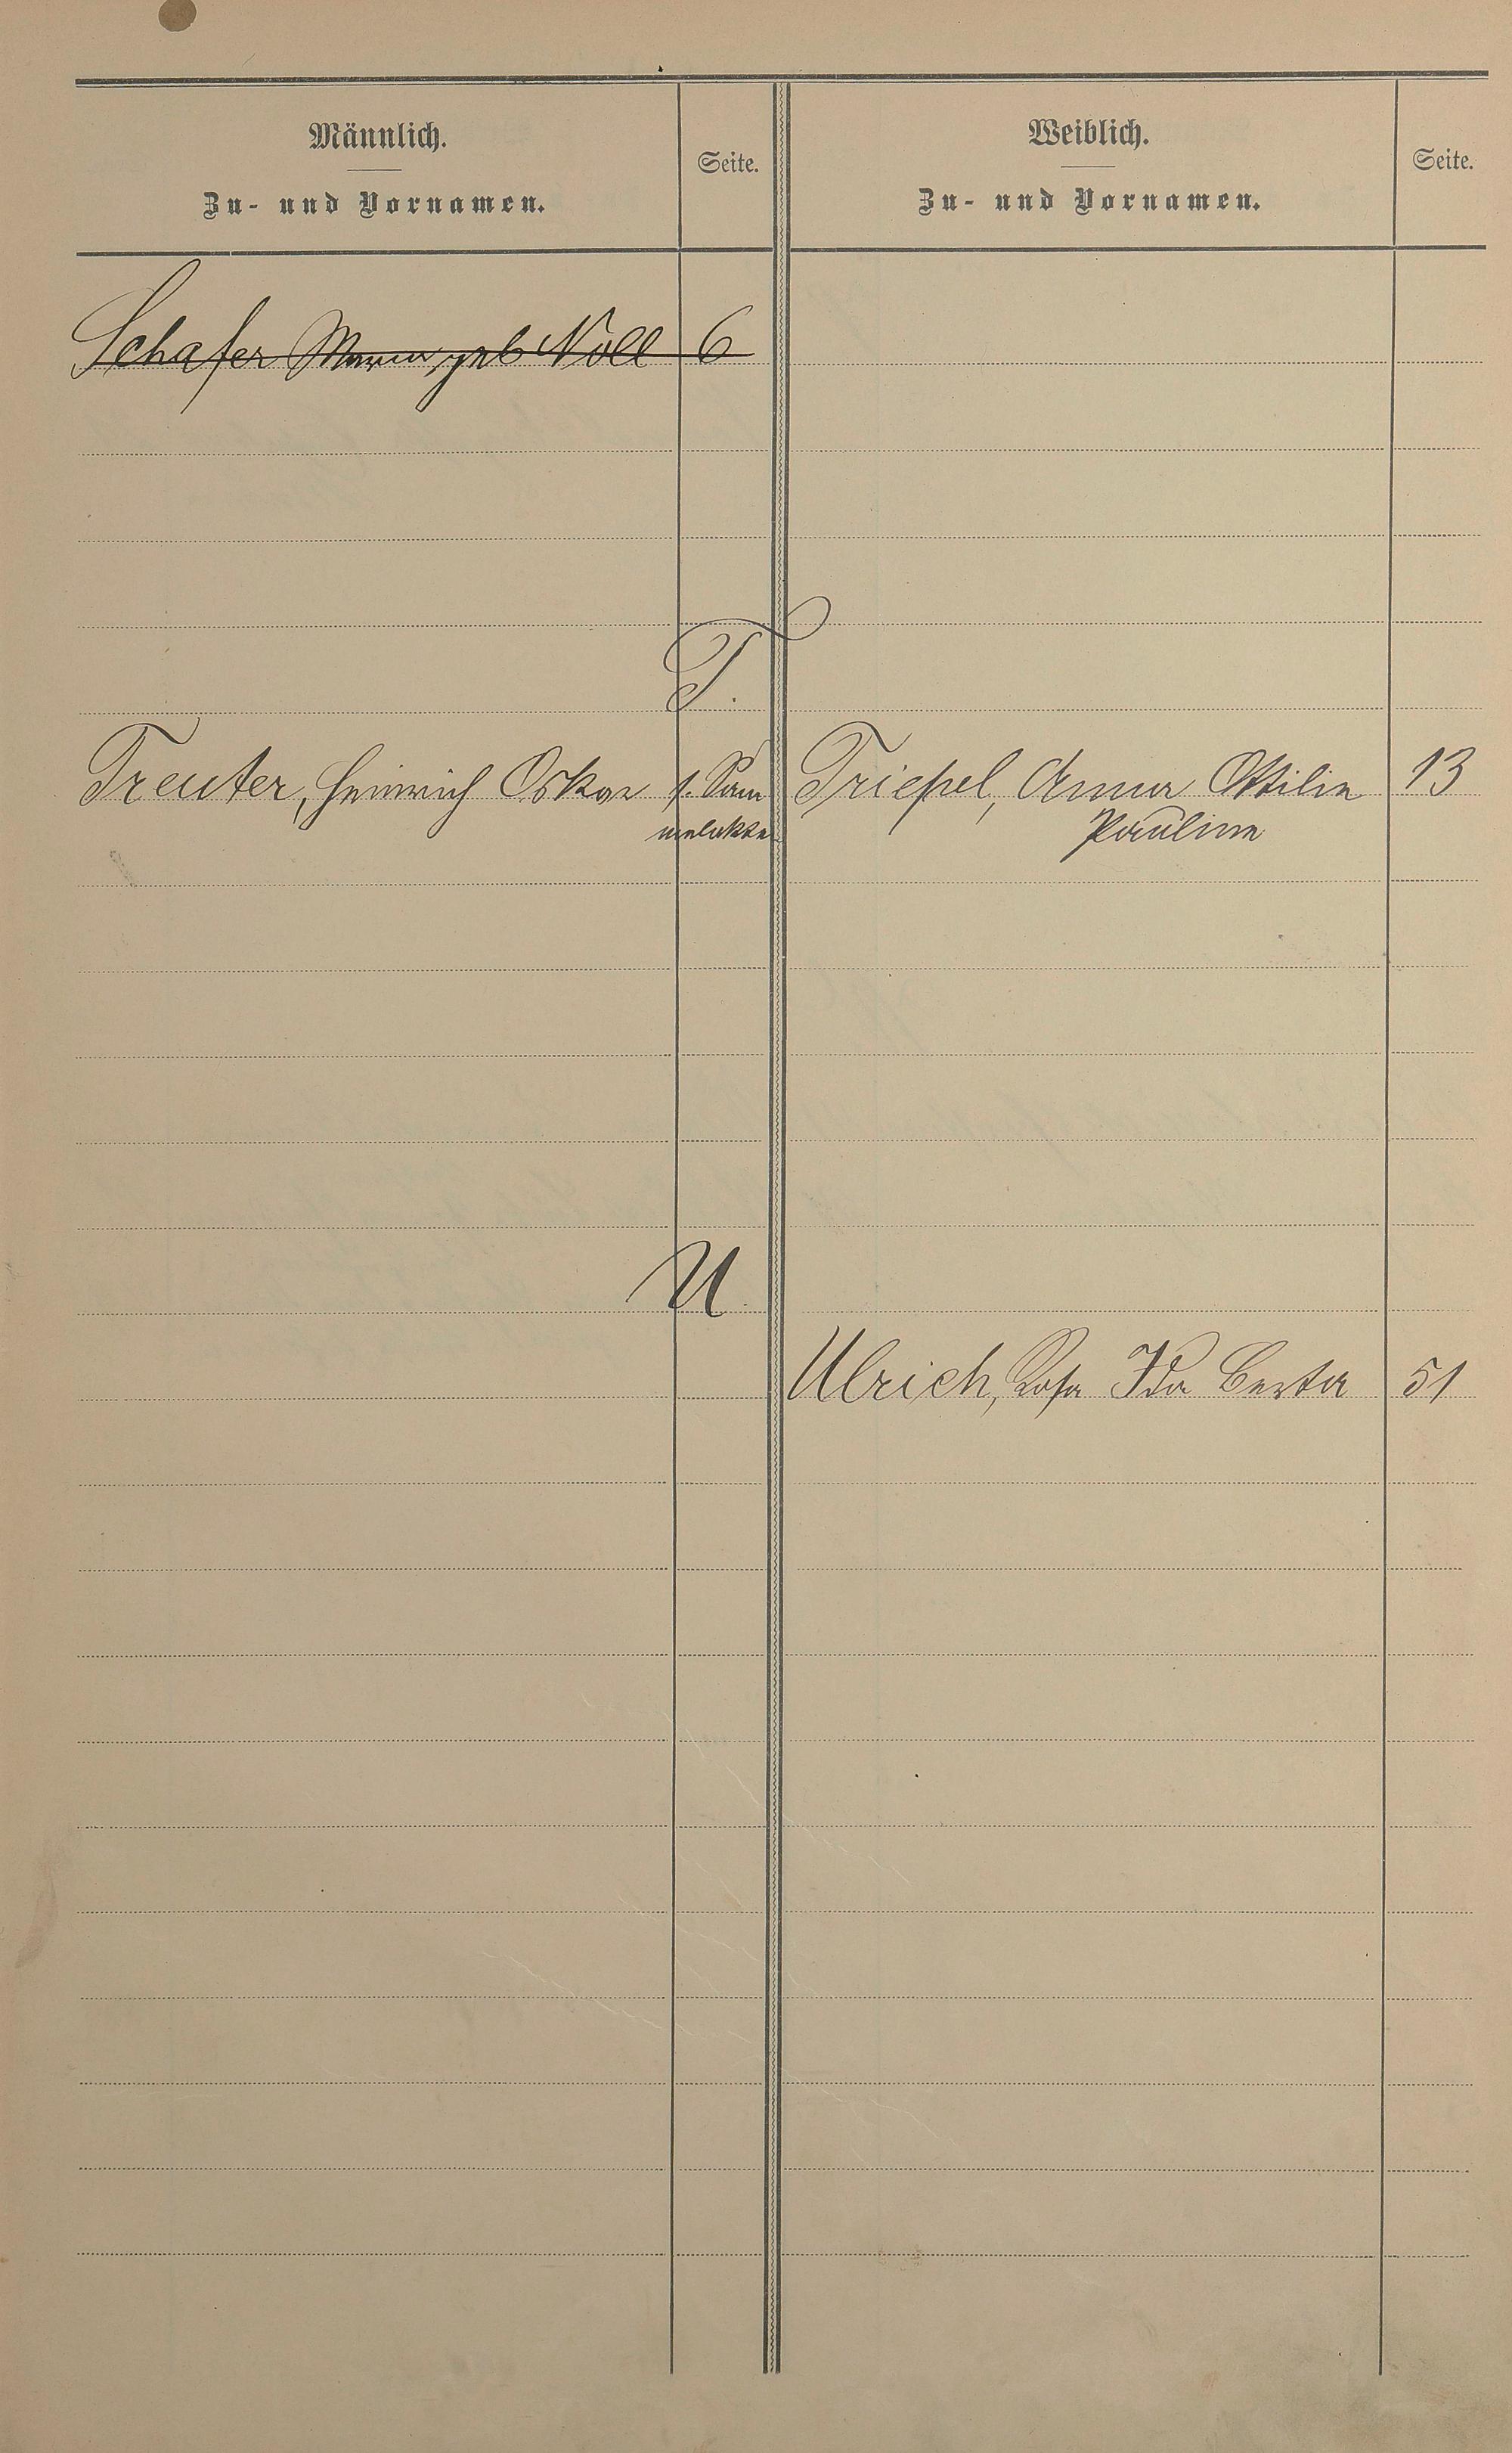 Männlich.
Zu- und Vornamen.
Seite.
Weiblich.
Zu- und Vornamen.
Seite.
Schafer Maria geb Noll 6
T.
Treuter, Heinrich Oskar s. Sam
melakten
Triepel, Anna Ottilie 13
Pauline
U.
Ulrich, Rosa Ida Berta 51